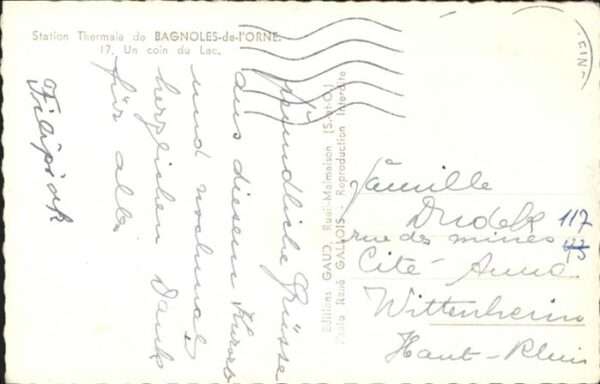 Station Thermale de BAGNOLES-de-l'ORNE.
17. Un coin du Lac.
freundliche Grüsse
aus diesem Kurort
und nochmals
herzlichen Dank
für alles
Filipiak
Editions GABY, Rueil-Malmaison (S.-et-O.)
Photo René GALLOIS - Reproduction Interdite
Famille
Dudek 117
rue des mines
Cité Anna
Wittenheim
Haut-Rhin